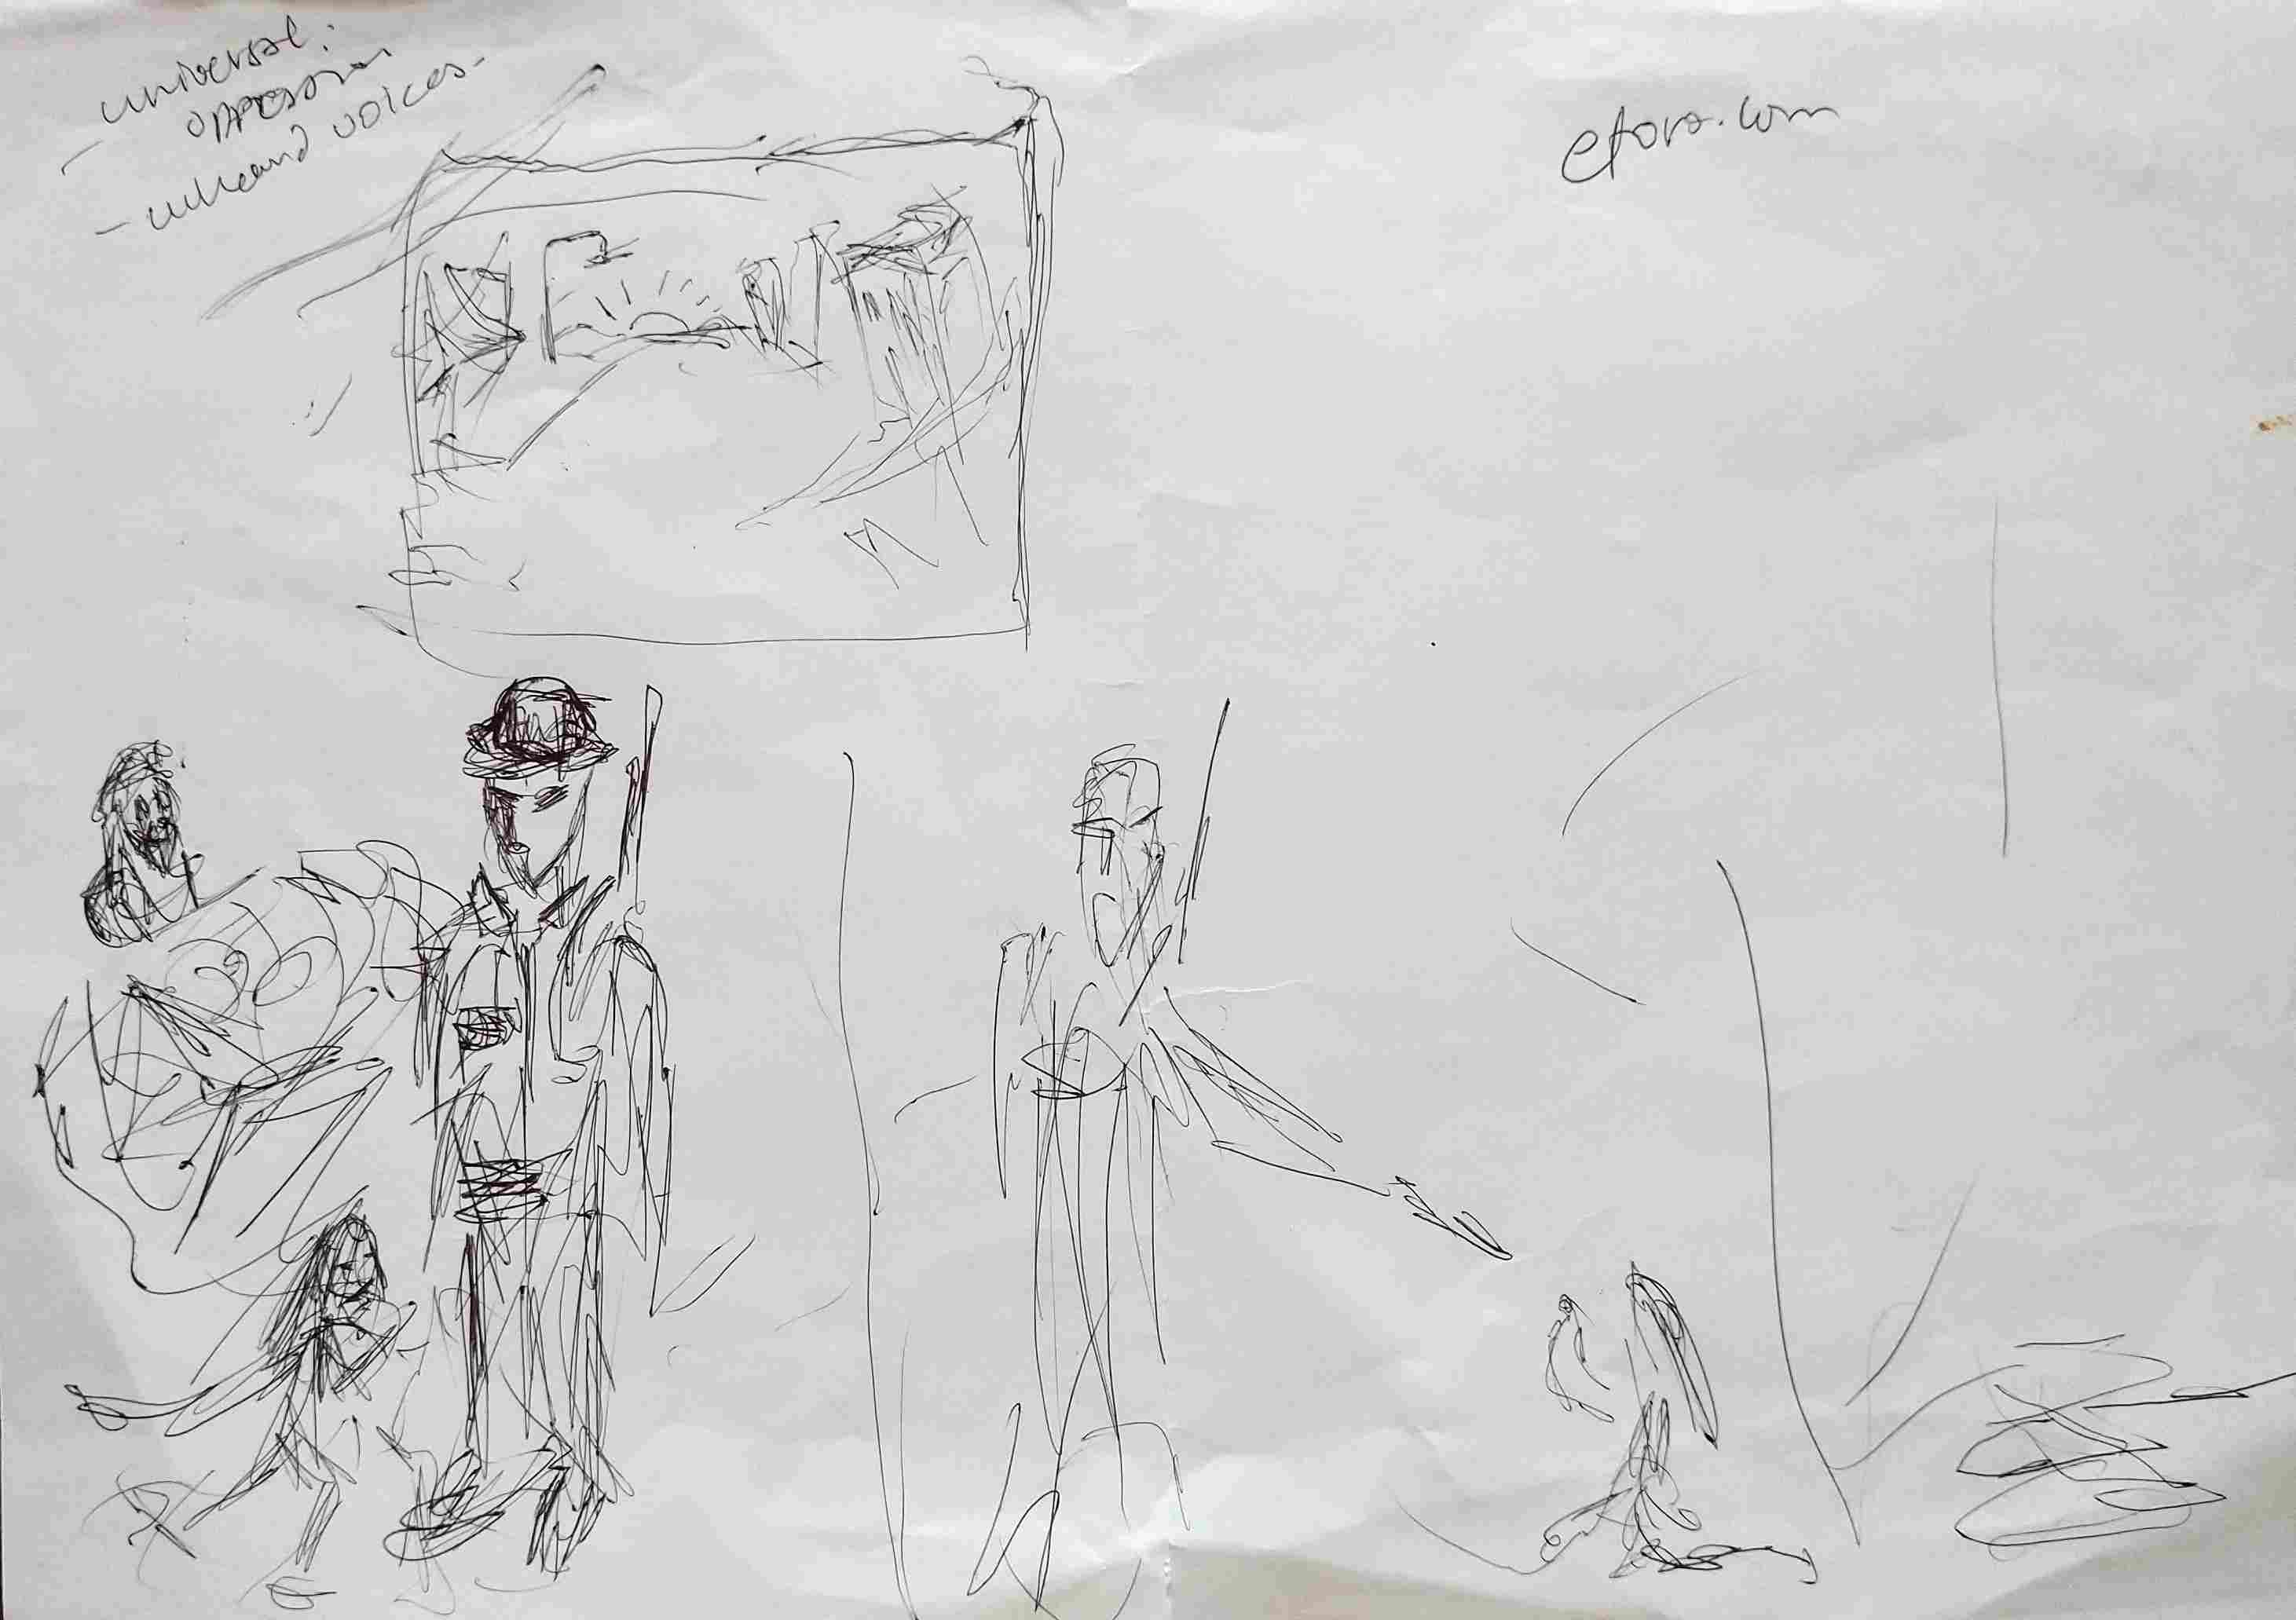 - universal:
oppression
- unheard voices-
efora.com